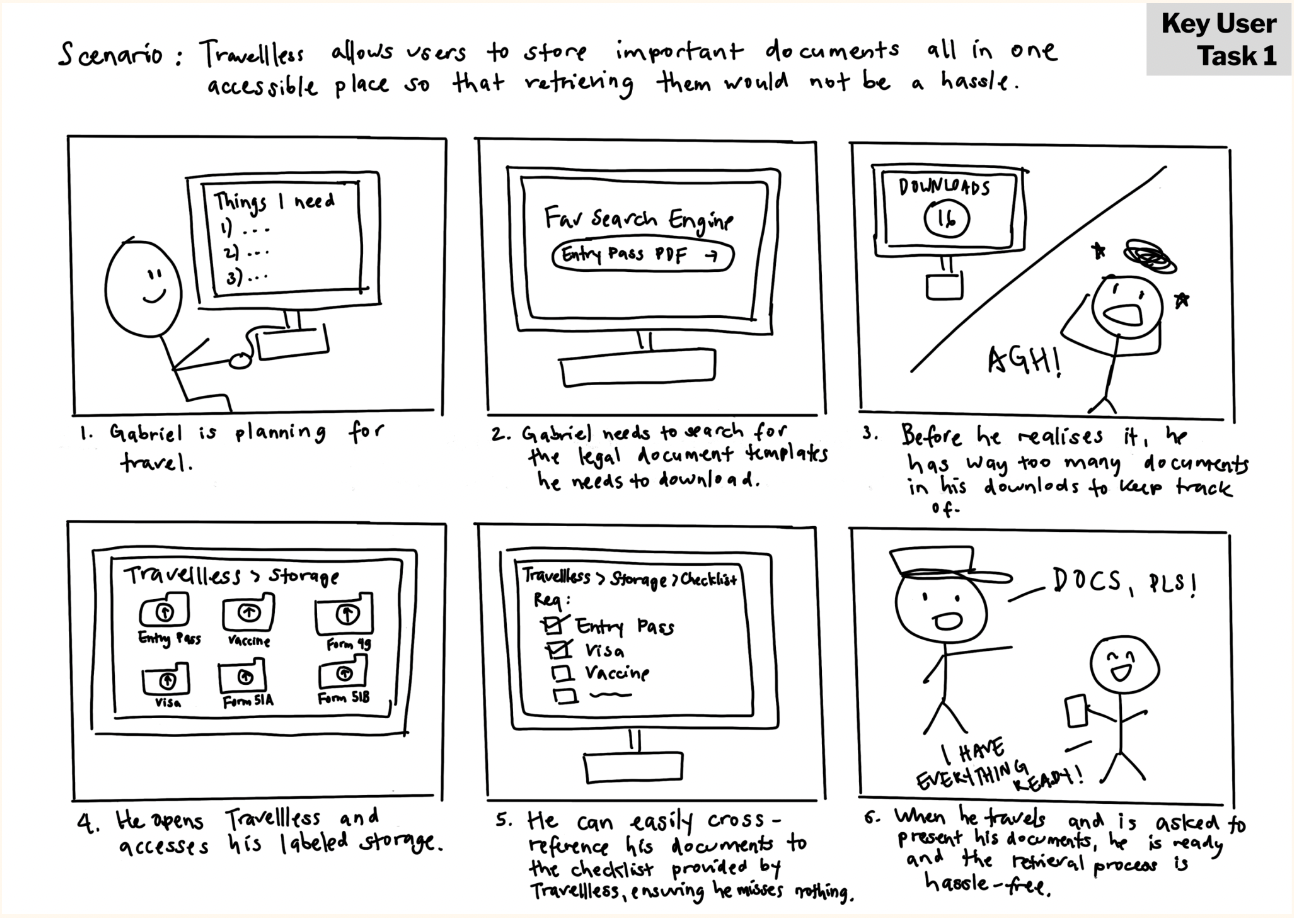 Key User
Task 1
Scenario : Travellless allows users to store important documents all in one
accessible place so that retrieving them would not be a hassle.
Things I need
1) ...
2) ...
3) ...
1. Gabriel is planning for
travel.
Fav Search Engine
Entry Pass PDF →
2. Gabriel needs to search for
the legal document templates
he needs to download.
DOWNLOADS
16
AGH!
3. Before he realises it, he
has way too many documents
in his downlods to keep track
of.
Travellless > Storage
Entry Pass
Vaccine
Form 49
Visa
Form 51A
Form 51B
4. He opens Travellless and
accesses his labeled storage.
Travellless > Storage > Checklist
Req:
Entry Pass
Visa
Vaccine
5. He can easily cross-
reference his documents to
the checklist provided by
Travellless, ensuring he misses nothing.
DOCS, PLS!
I HAVE
EVERYTHING
READY!
6. When he travels and is asked to
present his documents, he is ready
and the retrieval process is
hassle-free.